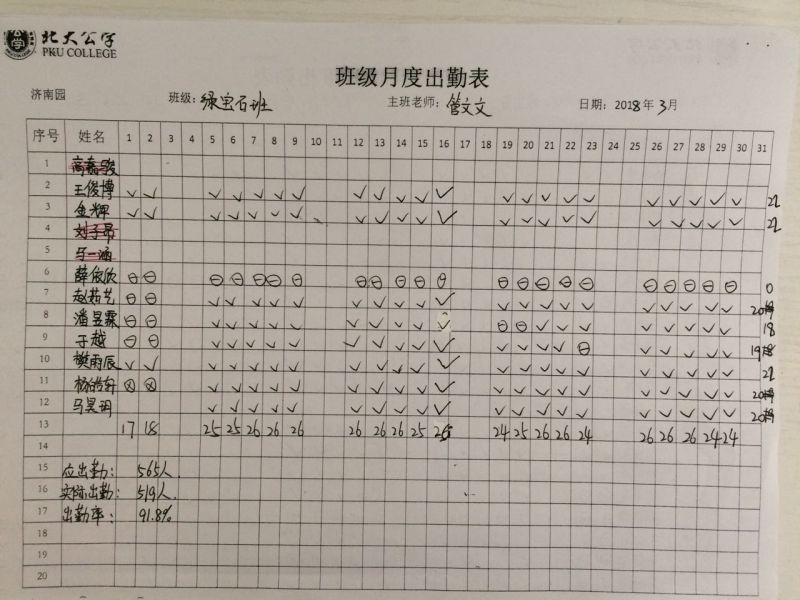 北大公学
PKU COLLEGE
班级月度出勤表
济南园 班级: 绿宝石班 主班老师: 管文文 日期: 2018年 3月
序号 姓名 1 2 3 4 5 6 7 8 9 10 11 12 13 14 15 16 17 18 19 20 21 22 23 24 25 26 27 28 29 30 31
1
2 王俊博 ✓ ✓ ✓ ✓ ✓ ✓ ✓ ✓ ✓ ✓ ✓ ✓ ✓ ✓ ✓ ✓ ✓ ✓ ✓ ✓ ✓ ✓ 22
3 金辉 ✓ ✓ ✓ ✓ ✓ ✓ ✓ ✓ ✓ ✓ ✓ ✓ ✓ ✓ ✓ ✓ ✓ ✓ ✓ ✓ ✓ ✓ 22
4 刘子昂
5 马一涵
6 薛依欣 ⊖ ⊖ ⊖ ⊖ ⊖ ⊖ ⊖ ⊖ ⊖ ⊖ ⊖ ⊖ ⊖ ⊖ ⊖ ⊖ ⊖ ⊖ ⊖ ⊖ ⊖ ⊖ 0
7 ⊖ ⊖ ✓ ✓ ✓ ✓ ✓ ✓ ✓ ✓ ✓ ✓ ✓ ✓ ✓ ✓ ✓ ✓ ✓ ✓ ✓ ✓ 20
8 潘昱霖 ⊖ ⊖ ✓ ✓ ✓ ✓ ✓ ✓ ✓ ✓ ✓ ✓ ⊖ ⊖ ✓ ✓ ✓ ✓ ✓ ✓ ✓ ✓ 18
9 于越 ⊖ ⊖ ✓ ✓ ✓ ✓ ✓ ✓ ✓ ✓ ✓ ✓ ✓ ✓ ✓ ✓ ⊖ ✓ ✓ ✓ ✓ ✓ 19
10 樊雨辰 ✓ ✓ ✓ ✓ ✓ ✓ ✓ ✓ ✓ ✓ ✓ ✓ ✓ ✓ ✓ ✓ ✓ ✓ ✓ ✓ ✓ ✓ 22
11 杨皓轩 ⊗ ⊗ ✓ ✓ ✓ ✓ ✓ ✓ ✓ ✓ ✓ ✓ ✓ ✓ ✓ ✓ ✓ ✓ ✓ ✓ ✓ ✓ 20
12 马昊玥 ✓ ✓ ✓ ✓ ✓ ✓ ✓ ✓ ✓ ✓ ✓ ✓ ✓ ✓ ✓ ✓ ✓ ✓ ✓ ✓ 20
13 17 18 25 25 26 26 26 26 26 26 25 26 24 25 26 26 24 26 26 26 24 24
14
15 应出勤: 565人.
16 实际出勤: 519人.
17 出勤率: 91.8%
18
19
20